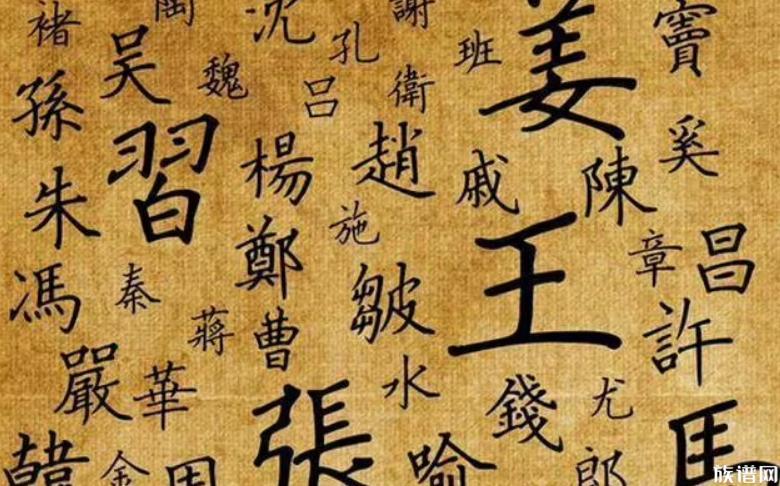 褚
陶
沈
謝
孔
班
姜
竇
孫
吴
魏
吕
衛
朱
習
楊
趙
戚
陳
奚
馮
秦
鄭
施
皺
王
章
昌
嚴
華
蔣
曹
水
錢
尤
許
韓
金
張
喻
郎
族谱网